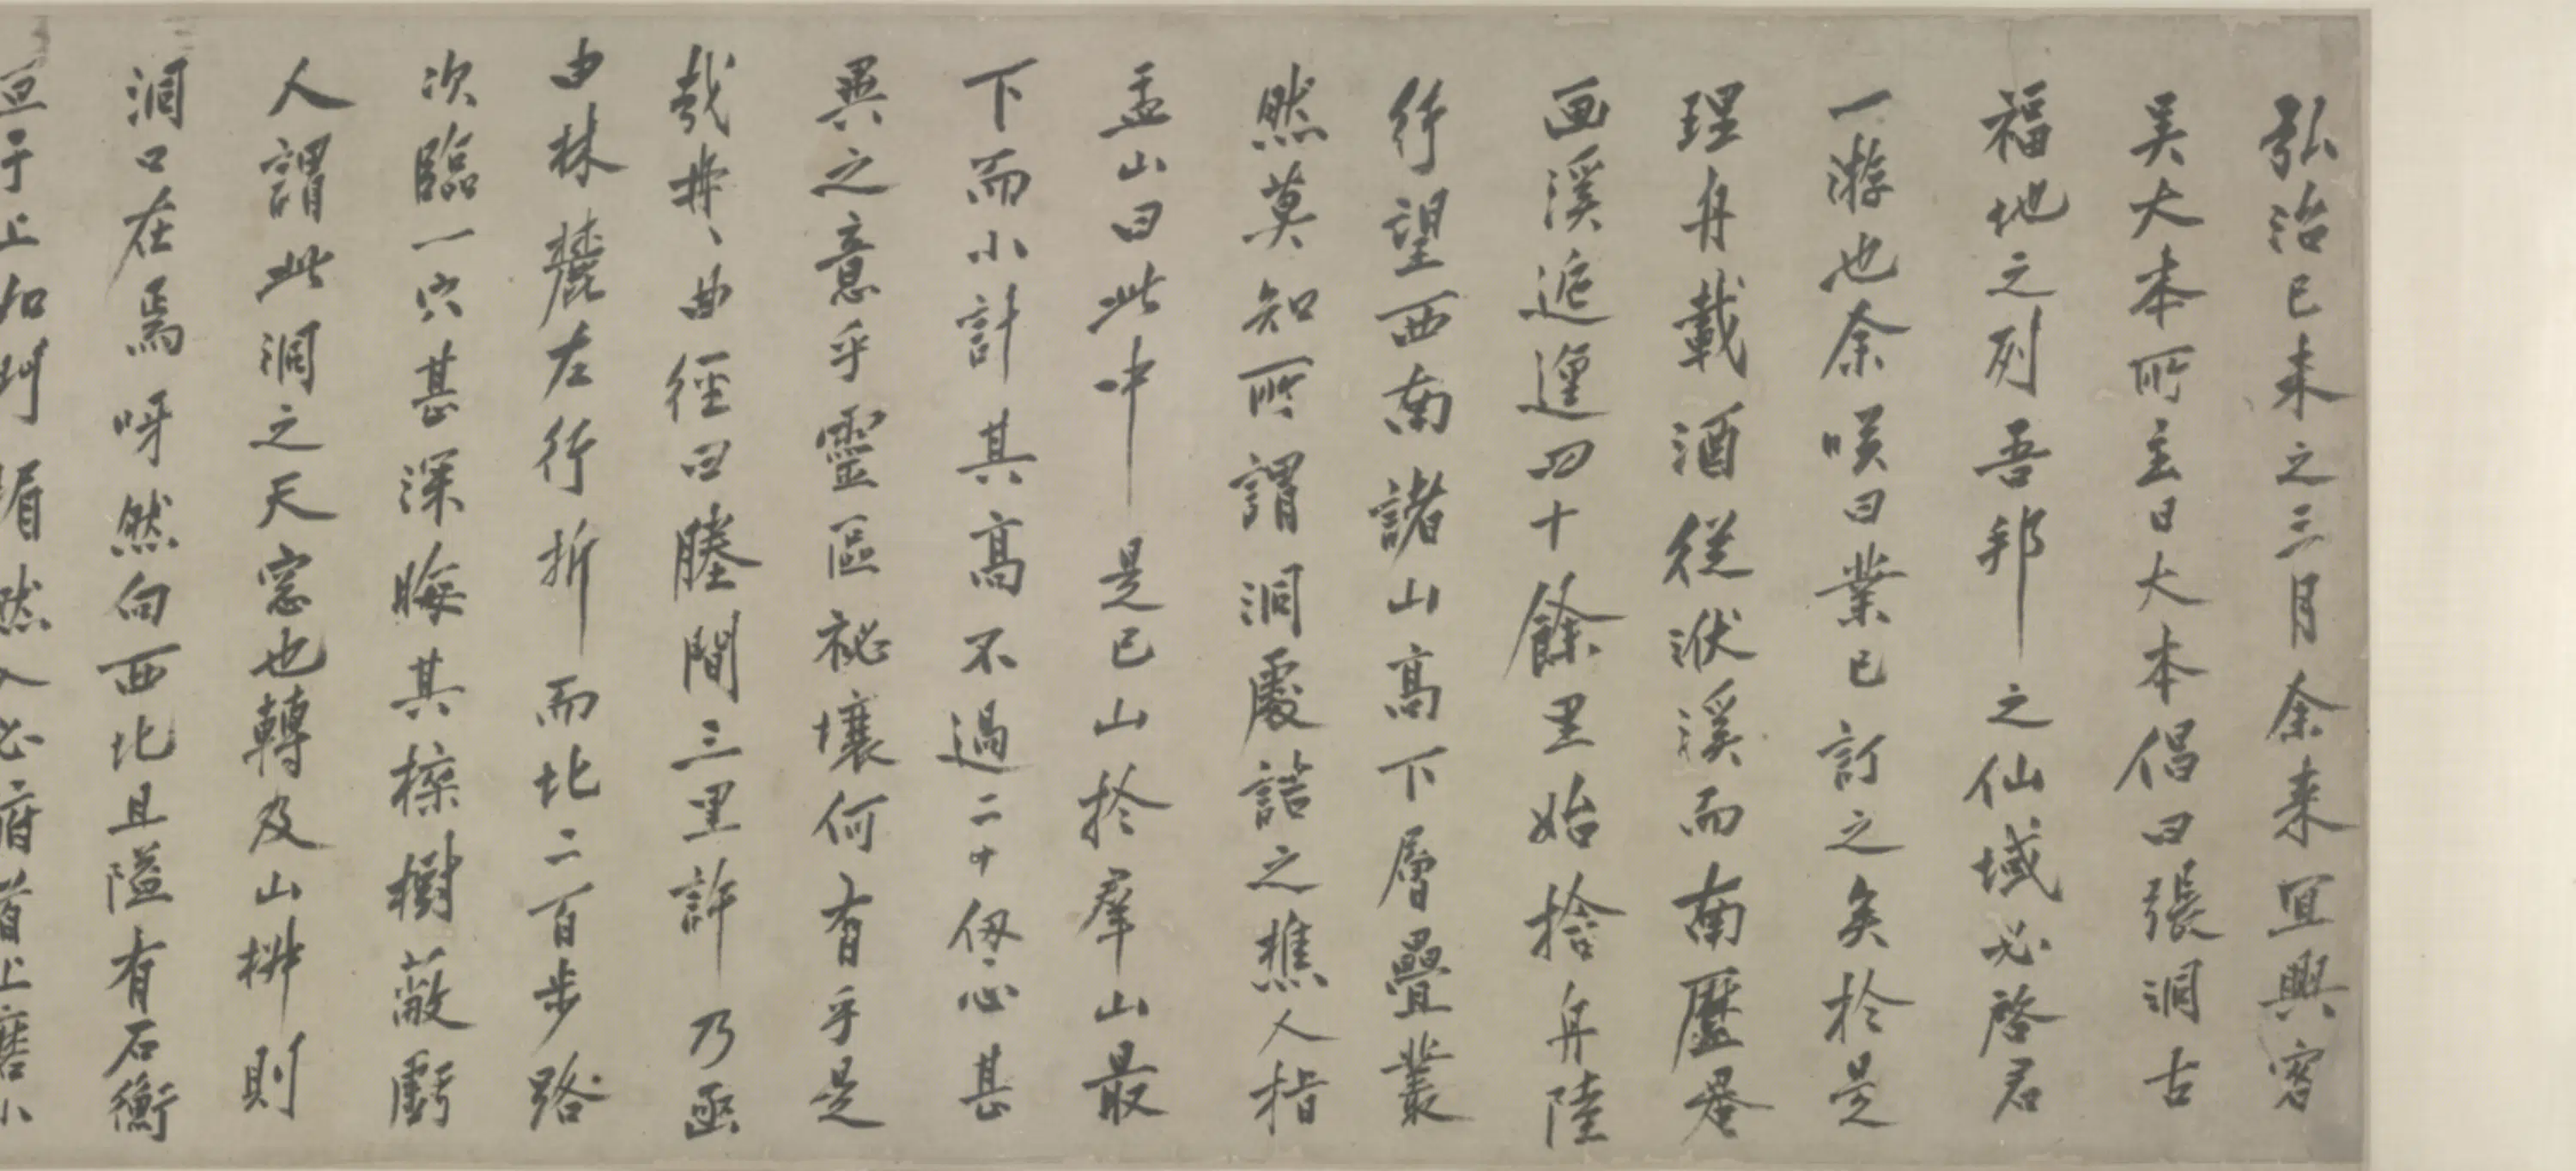 弘治己未之三月余来宜興客
吳大本所主日大本倡曰張洞古
福地之列吾邦之仙域必啓君
一游也余咲曰業已訂之矣於是
理舟載酒従洑溪而南歷罨
画溪迤邐四十餘里始捨舟陸
行望西南諸山高下層疊叢
然莫知所謂洞處詰之樵人指
盂山曰此中是已山於羣山最
下而小計其高不過二十仭心甚
異之意乎靈區祕壤何有乎是
哉棄曲徑曰塍間三里許乃亟
由林麓左行折而北二百步路
次臨一穴甚深晦其檪樹蔽虧
人謂此洞之天窓也轉及山椒則
洞口在焉呀然向西北且隘有石衡
亘于上如門眉然入必俯首上磨小